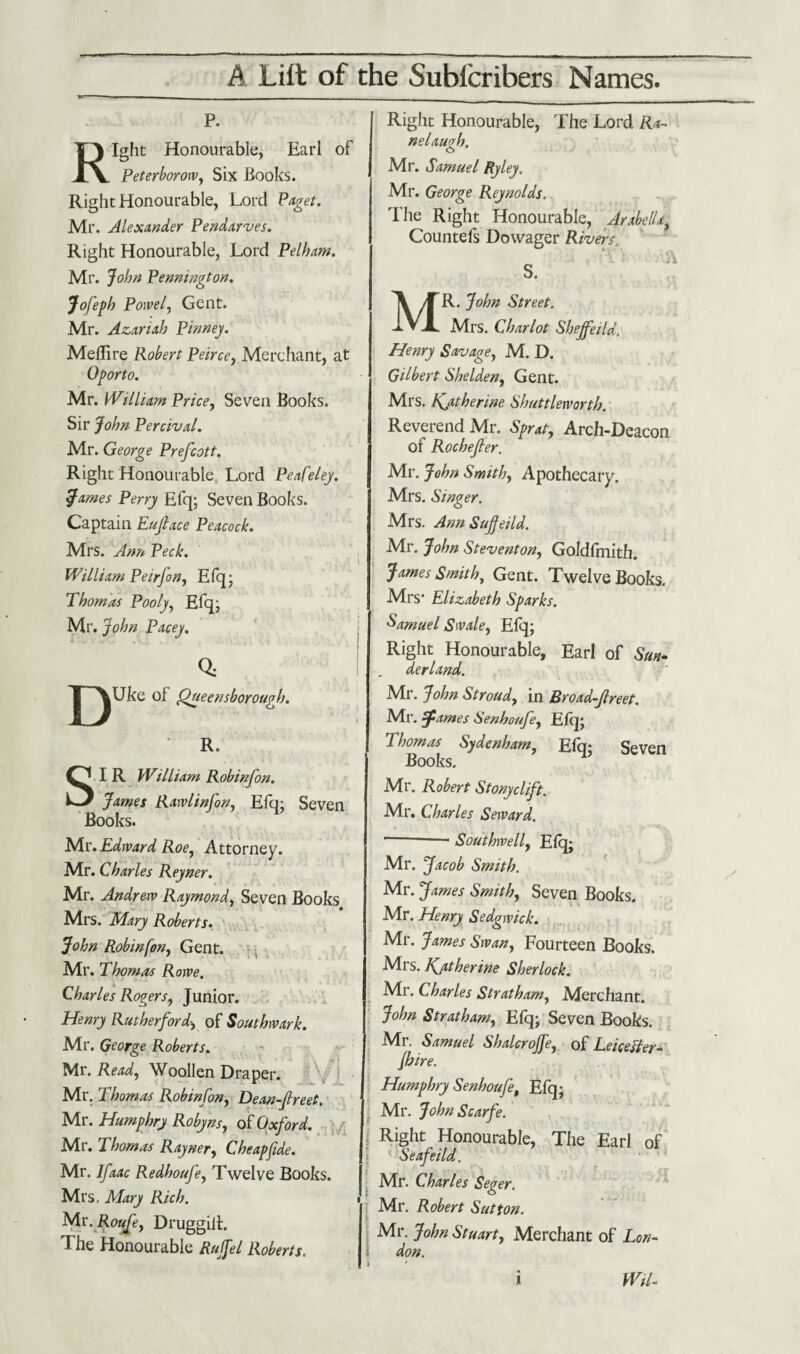 A Liſt of the Subſcribers Names.
P.
RIght Honourable, Earl of
Peterborow, Six Books.
Right Honourable, Lord Paget.
Mr. Alexander Pendarves.
Right Honourable, Lord Pelham.
Mr. John Pennington.
Joſeph Powel, Gent.
Mr. Azariah Pinney.
Meſſire Robert Peirce, Merchant, at
Oporto.
Mr. William Price, Seven Books.
Sir John Percival.
Mr. George Preſcott.
Right Honourable Lord Peaſeley.
James Perry Eſq; Seven Books.
Captain Euſtace Peacock.
Mrs. Ann Peck.
William Peirſon, Eſq;
Thomas Pooly, Eſq;
Mr. John Pacey.
Q.
DUke of Queensborough.
R.
SIR William Robinſon.
James Rawlinſon, Eſq; Seven
Books.
Mr. Edward Roe, Attorney.
Mr. Charles Reyner.
Mr. Andrew Raymond, Seven Books.
Mrs. Mary Roberts.
John Robinſon, Gent.
Mr. Thomas Rowe.
Charles Rogers, Junior.
Henry Rutherford, of Southwark.
Mr. George Roberts.
Mr. Read, Woollen Draper.
Mr. Thomas Robinſon, Dean-ſtreet.
Mr. Humphry Robyns, of Oxford.
Mr. Thomas Rayner, Cheapſide.
Mr. Iſaac Redhouſe, Twelve Books.
Mrs. Mary Rich.
Mr. Rouſe, Druggiſt.
The Honourable Ruſſel Roberts.
Right Honourable, The Lord Ra-
nelaugh.
Mr. Samuel Ryley.
Mr. George Reynolds.
The Right Honourable, Arabella,
Counteſs Dowager Rivers.
S.
MR. John Street.
Mrs. Charlot Sheffeild.
Henry Savage, M. D.
Gilbert Shelden, Gent.
Mrs. Katherine Shuttleworth.
Reverend Mr. Sprat, Arch-Deacon
of Rocheſter.
Mr. John Smith, Apothecary.
Mrs. Singer.
Mrs. Ann Suffeild.
Mr. John Steventon, Goldſmith.
James Smith, Gent. Twelve Books.
Mrs· Elizabeth Sparks.
Samuel Swale, Eſq;
Right Honourable, Earl of Sun-
derland.
Mr. John Stroud, in Broad-ſtreet.
Mr. James Senhouſe, Eſq;
Thomas Sydenham, Eſq; Seven
Books.
Mr. Robert Stonyclift.
Mr. Charles Seward.
——— Southwell, Eſq;
Mr. Jacob Smith.
Mr. James Smith, Seven Books.
Mr. Henry Sedgwick.
Mr. James Swan, Fourteen Books.
Mrs. Katherine Sherlock.
Mr. Charles Stratham, Merchant.
John Stratham, Eſq; Seven Books.
Mr. Samuel Shalcroſſe, of Leiceſter-
ſhire.
Humphry Senhouſe, Eſq;
Mr. John Scarfe.
Right Honourable, The Earl of
Seafeild.
Mr. Charles Seger.
Mr. Robert Sutton.
Mr. John Stuart, Merchant of Lon-
don.
i Wil-